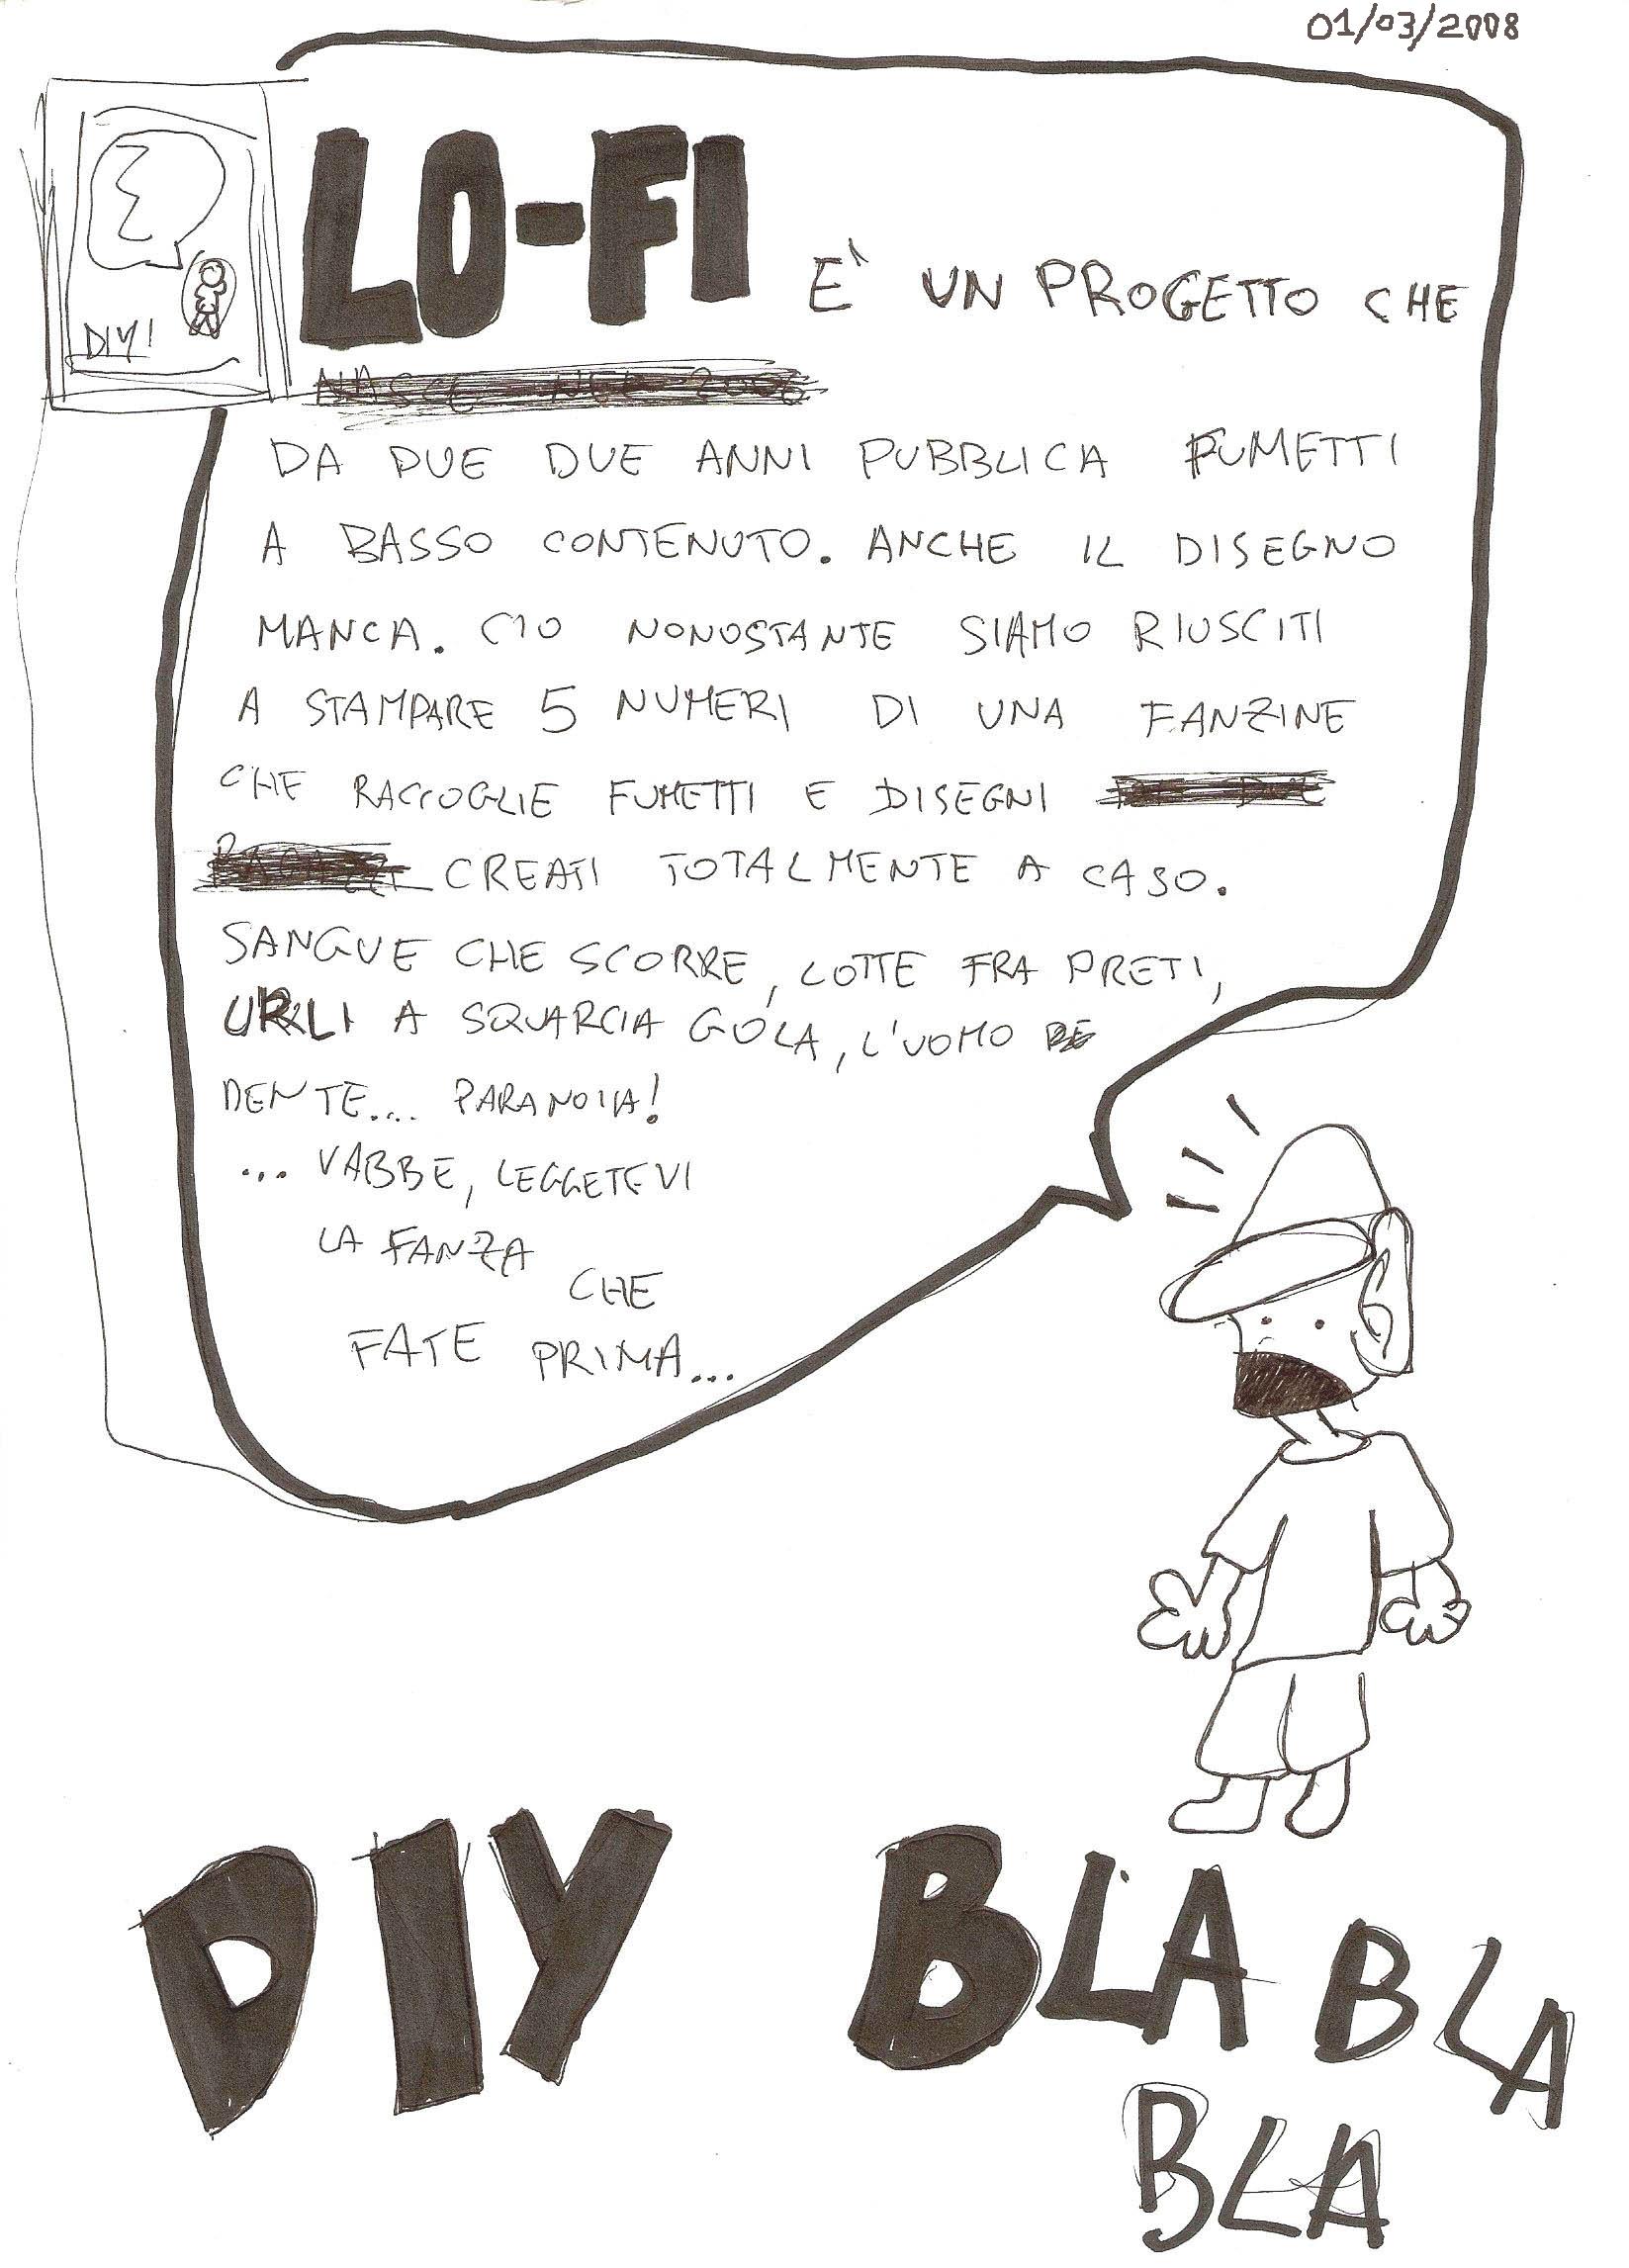 01/03/2008
DIY!
LO-FI E' UN PROGETTO CHE
NASCE NEL 2006
DA DUE DUE ANNI PUBBLICA FUMETTI
A BASSO CONTENUTO. ANCHE IL DISEGNO
MANCA. CIO NONOSTANTE SIAMO RIUSCITI
A STAMPARE 5 NUMERI DI UNA FANZINE
CHE RACCOGLIE FUMETTI E DISEGNI DUE
CREATI TOTALMENTE A CASO.
SANGUE CHE SCORRE, LOTTE FRA PRETI,
URLI A SQUARCIA GOLA, L'UOMO
DENTE.... PARANOIA!
... VABBE, LEGGETEVI
LA FANZA
CHE
FATE PRIMA...
DIY BLA BLA
BLA